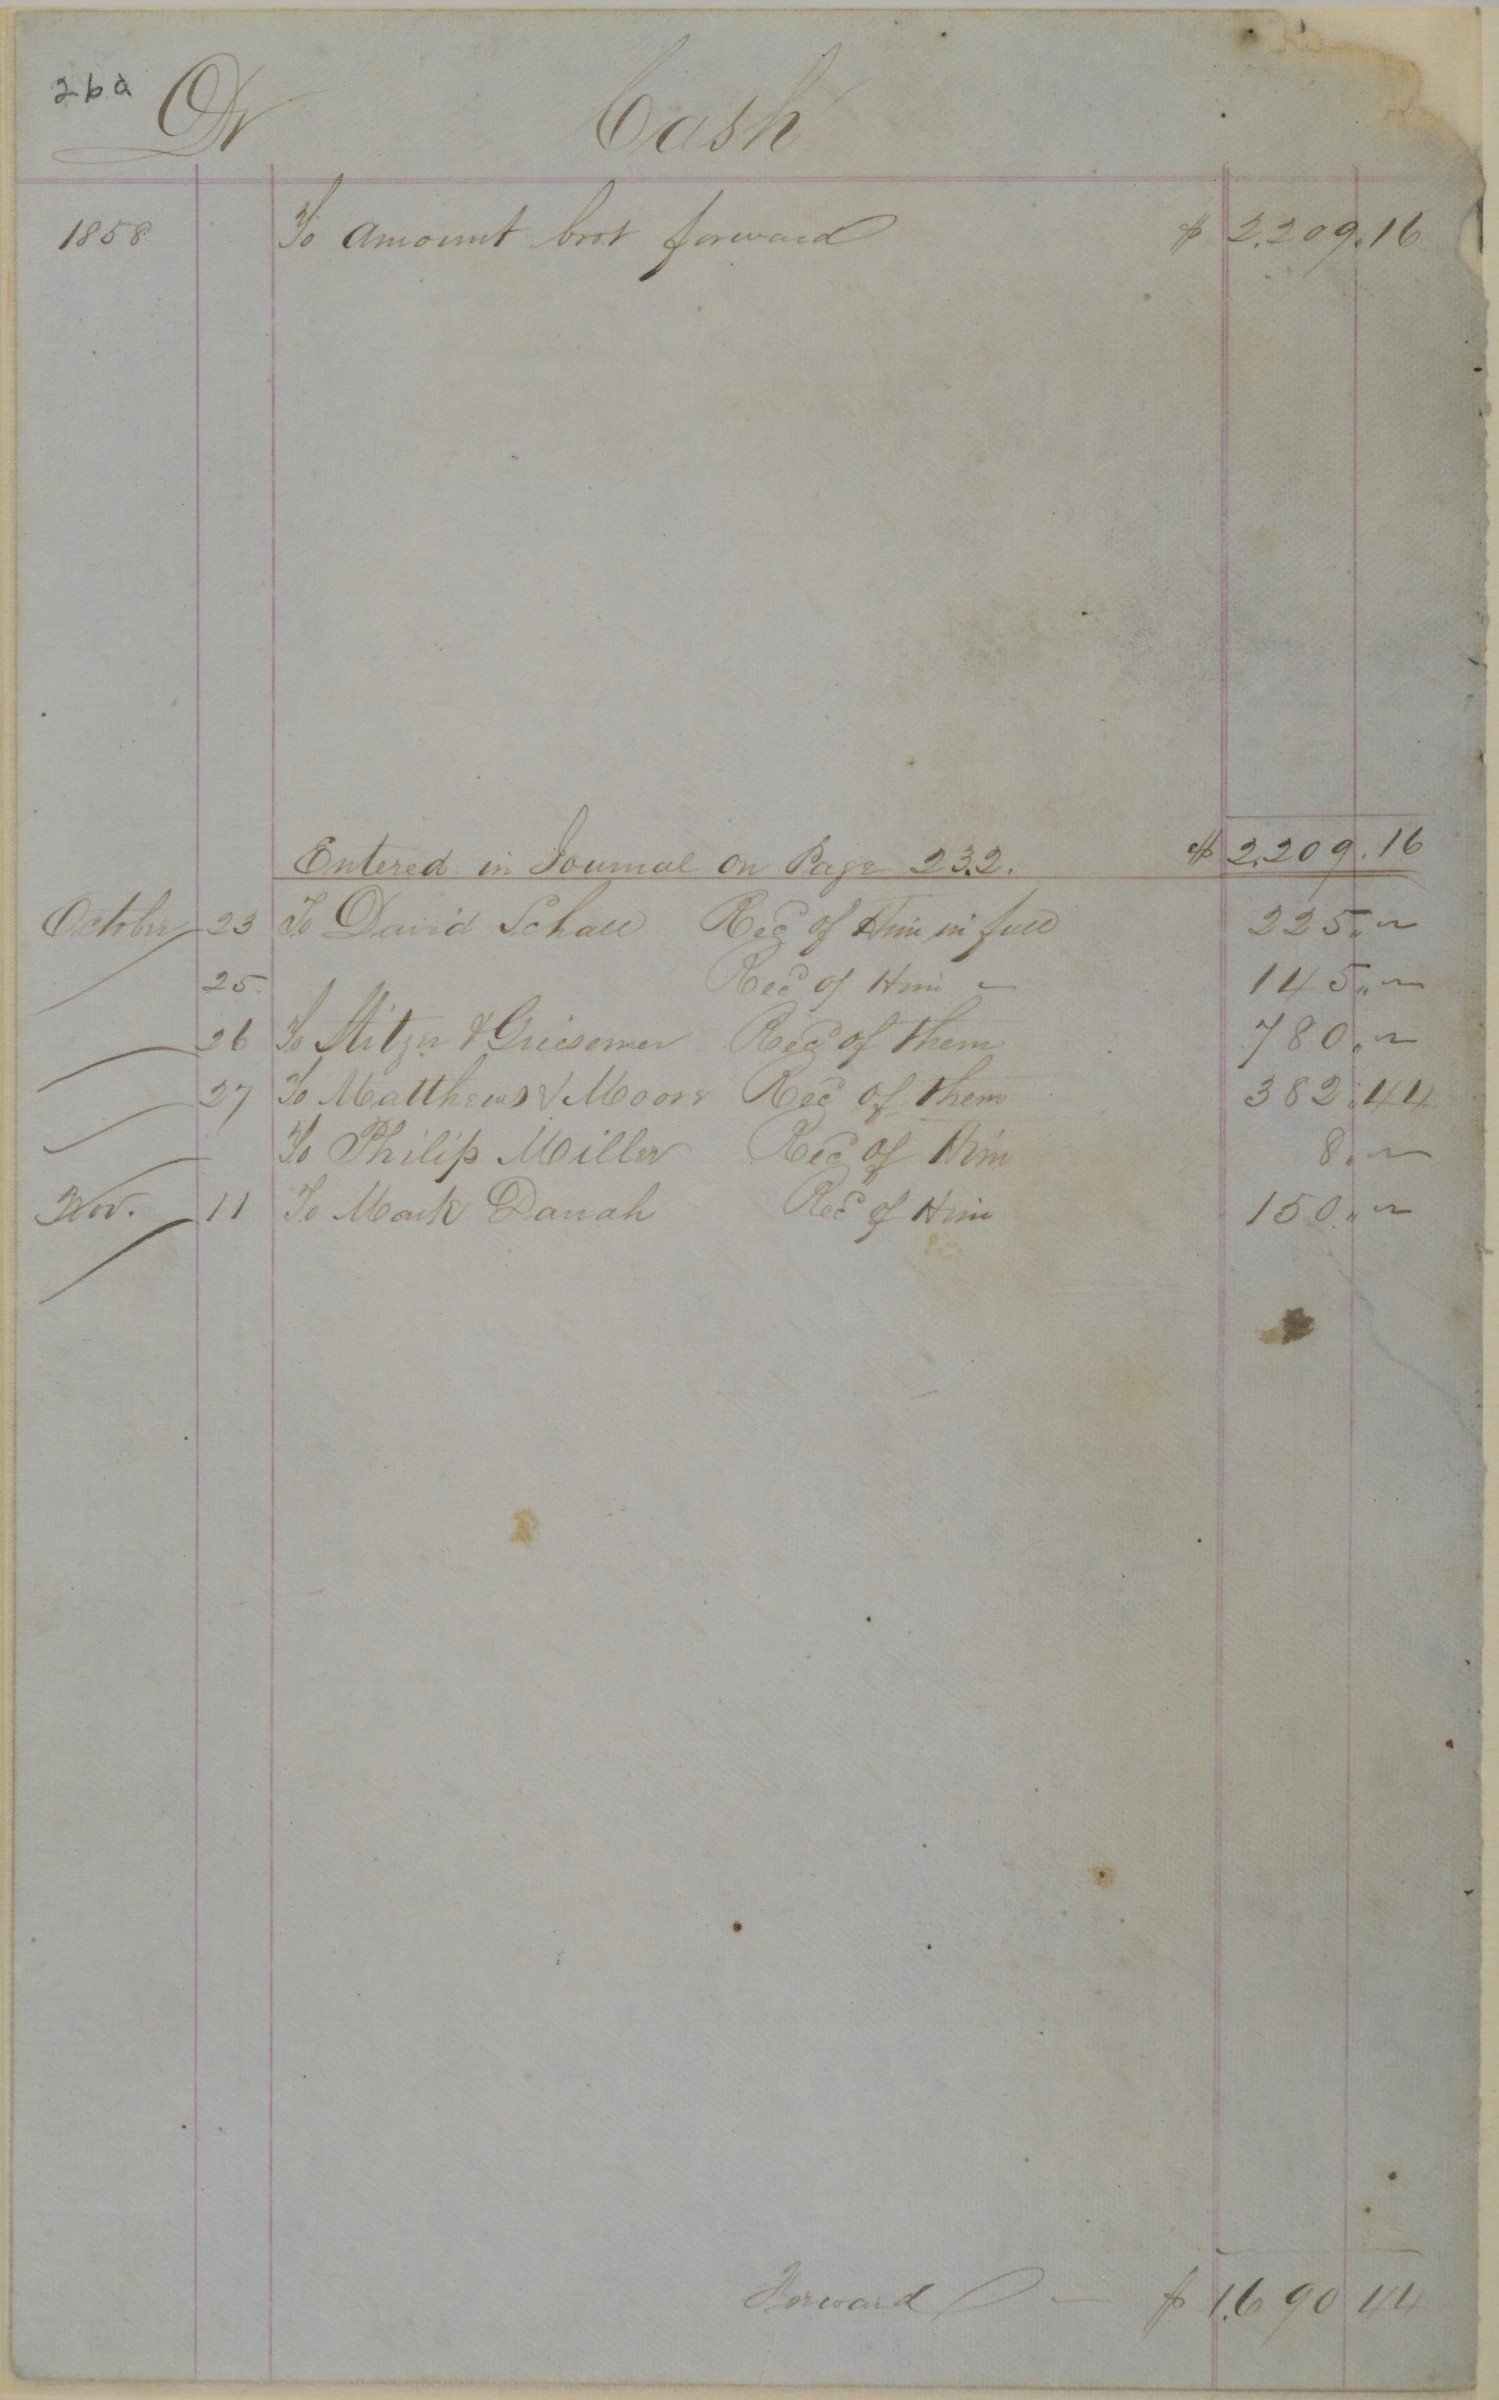 26a Dr Cash
1858 To amount brot forward $ 2.209.16
Entered in Journal on Page 232. $ 2.209.16
October 23 To David Schall Recd of Him in full 225.~
25 Recd of Him ~ 145.~
26 To Stitzer & Griesemer Recd of them 780.~
27 To Matthews & Moore Recd of them 382.44
To Philip Miller Recd of Him 8.~
Nov. 11 To Mark Darrah Recd of Him 150.~
Forward ~ $ 1.690 44